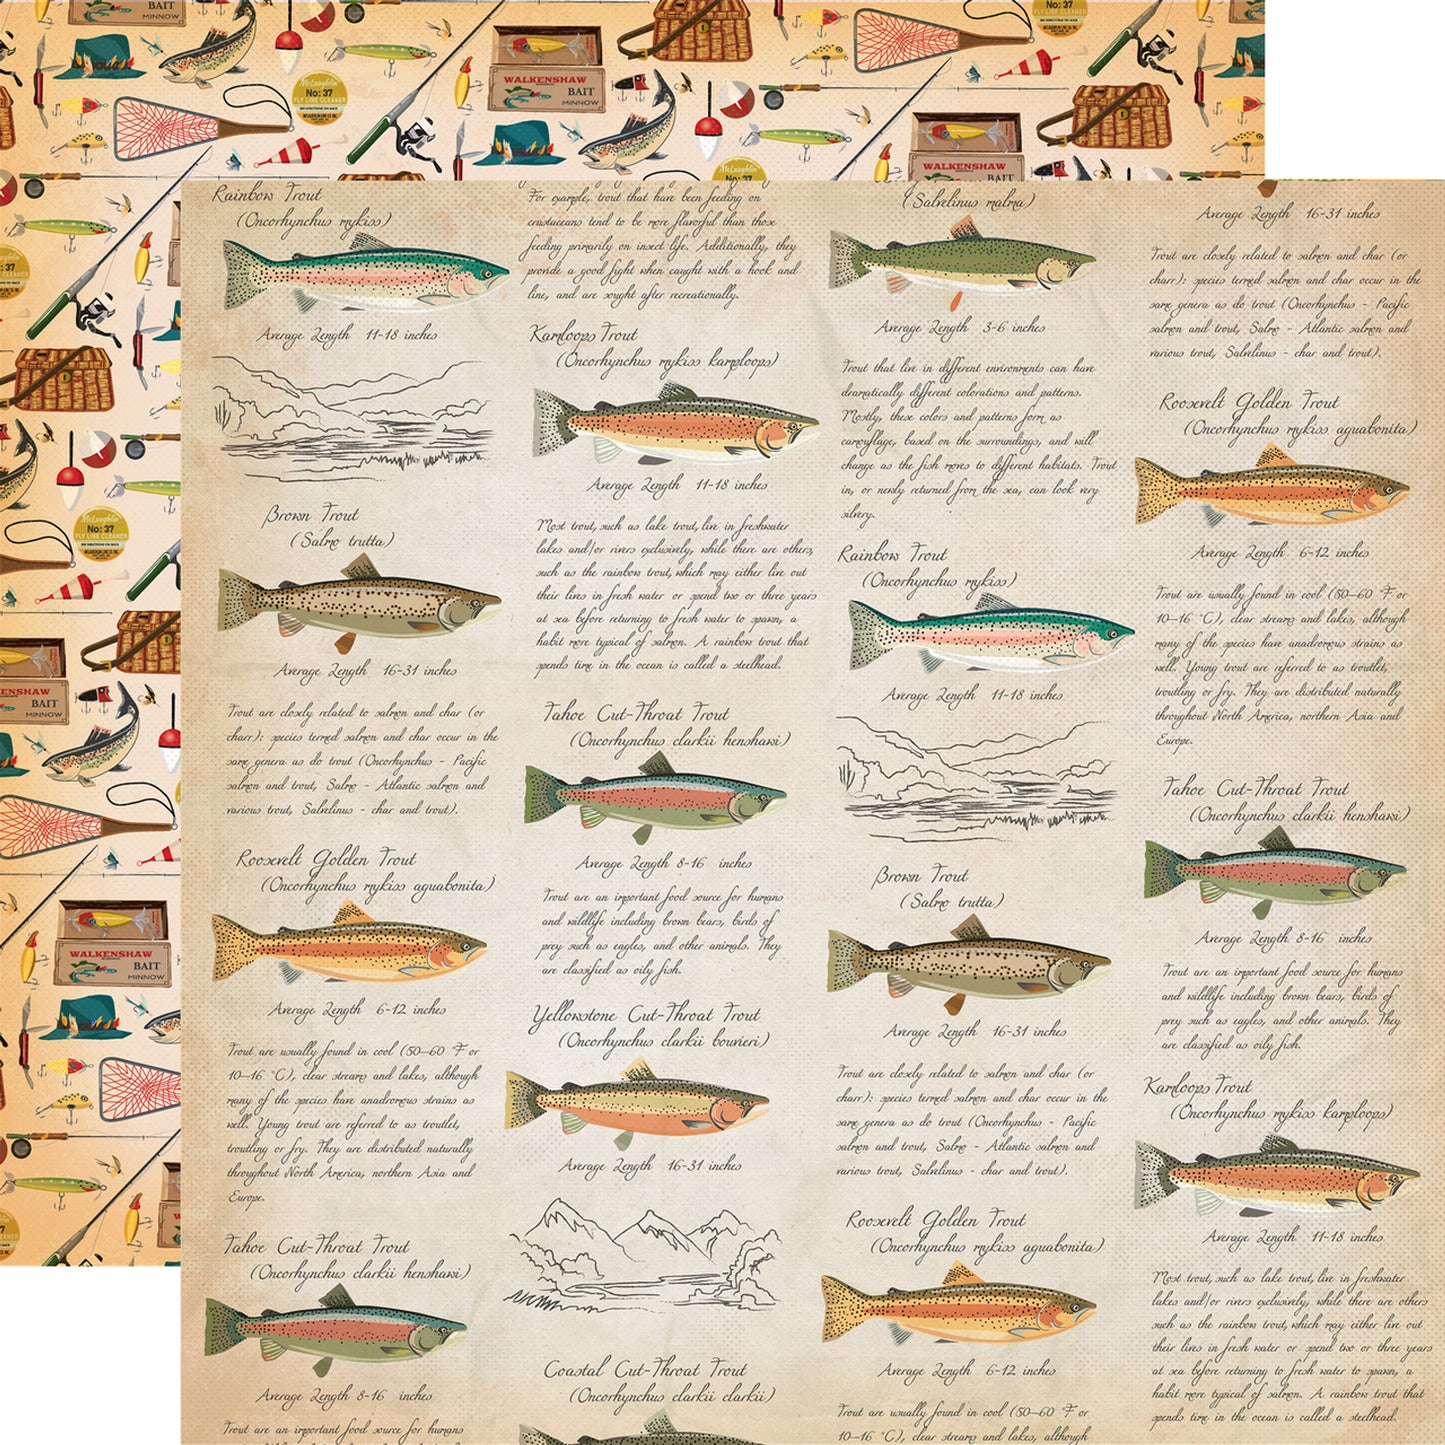 BAIT
MINNOW
McLaughlin
No: 37
FLY LINE CLEANER
WALKENSHAW
BAIT
MINNOW
WALKENSHAW
No: 37
WALKENSHAW
No: 37
McLaughlin
No: 37
FLY LINE CLEANER
WALKENSHAW
BAIT
MINNOW
WALKENSHAW
BAIT
MINNOW
BAIT
MINNOW
Rainbow Trout
(Oncorhynchus mykiss)
Average Length 11-18 inches
Brown Trout
(Salmo trutta)
Average Length 16-31 inches
Trout are closely related to salmon and char (or
charr): species termed salmon and char occur in the
same genera as do trout (Oncorhynchus - Pacific
salmon and trout, Salmo - Atlantic salmon and
various trout, Salvelinus - char and trout).
Roosevelt Golden Trout
(Oncorhynchus mykiss aguabonita)
Average Length 6-12 inches
Trout are usually found in cool (50–60 °F or
10–16 °C), clear streams and lakes, although
many of the species have anadromous strains as
well. Young trout are referred to as troutlet,
troutling or fry. They are distributed naturally
throughout North America, northern Asia and
Europe.
Tahoe Cut-Throat Trout
(Oncorhynchus clarkii henshawi)
Average Length 8-16 inches
Trout are an important food source for humans
For example, trout that have been feeding on
crustaceans tend to be more flavorful than those
feeding primarily on insect life. Additionally, they
provide a good fight when caught with a hook and
line, and are sought after recreationally.
Kamloops Trout
(Oncorhynchus mykiss kamploops)
Average Length 11-18 inches
Most trout, such as lake trout, live in freshwater
lakes and/or rivers exclusively, while there are others,
such as the rainbow trout, which may either live out
their lives in fresh water or spend two or three years
at sea before returning to fresh water to spawn, a
habit more typical of salmon. A rainbow trout that
spends time in the ocean is called a steelhead.
Tahoe Cut-Throat Trout
(Oncorhynchus clarkii henshawi)
Average Length 8-16 inches
Trout are an important food source for humans
and wildlife including brown bears, birds of
prey such as eagles, and other animals. They
are classified as oily fish.
Yellowstone Cut-Throat Trout
(Oncorhynchus clarkii bouvieri)
Average Length 16-31 inches
Coastal Cut-Throat Trout
(Oncorhynchus clarkii clarkii)
(Salvelinus malma)
Average Length 3-6 inches
Trout that live in different environments can have
dramatically different colorations and patterns.
Mostly, these colors and patterns form as
camouflage, based on the surroundings, and will
change as the fish moves to different habitats. Trout
in, or newly returned from the sea, can look very
silvery.
Rainbow Trout
(Oncorhynchus mykiss)
Average Length 11-18 inches
Brown Trout
(Salmo trutta)
Average Length 16-31 inches
Trout are closely related to salmon and char (or
charr): species termed salmon and char occur in the
same genera as do trout (Oncorhynchus - Pacific
salmon and trout, Salmo - Atlantic salmon and
various trout, Salvelinus - char and trout).
Roosevelt Golden Trout
(Oncorhynchus mykiss aguabonita)
Average Length 6-12 inches
Trout are usually found in cool (50–60 °F or
10–16 °C), clear streams and lakes, although
Average Length 16-31 inches
Trout are closely related to salmon and char (or
charr): species termed salmon and char occur in the
same genera as do trout (Oncorhynchus - Pacific
salmon and trout, Salmo - Atlantic salmon and
various trout, Salvelinus - char and trout).
Roosevelt Golden Trout
(Oncorhynchus mykiss aguabonita)
Average Length 6-12 inches
Trout are usually found in cool (50–60 °F or
10–16 °C), clear streams and lakes, although
many of the species have anadromous strains as
well. Young trout are referred to as troutlet,
troutling or fry. They are distributed naturally
throughout North America, northern Asia and
Europe.
Tahoe Cut-Throat Trout
(Oncorhynchus clarkii henshawi)
Average Length 8-16 inches
Trout are an important food source for humans
and wildlife including brown bears, birds of
prey such as eagles, and other animals. They
are classified as oily fish.
Kamloops Trout
(Oncorhynchus mykiss kamploops)
Average Length 11-18 inches
Most trout, such as lake trout, live in freshwater
lakes and/or rivers exclusively, while there are others
such as the rainbow trout, which may either live out
their lives in fresh water or spend two or three years
at sea before returning to fresh water to spawn, a
habit more typical of salmon. A rainbow trout that
spends time in the ocean is called a steelhead.